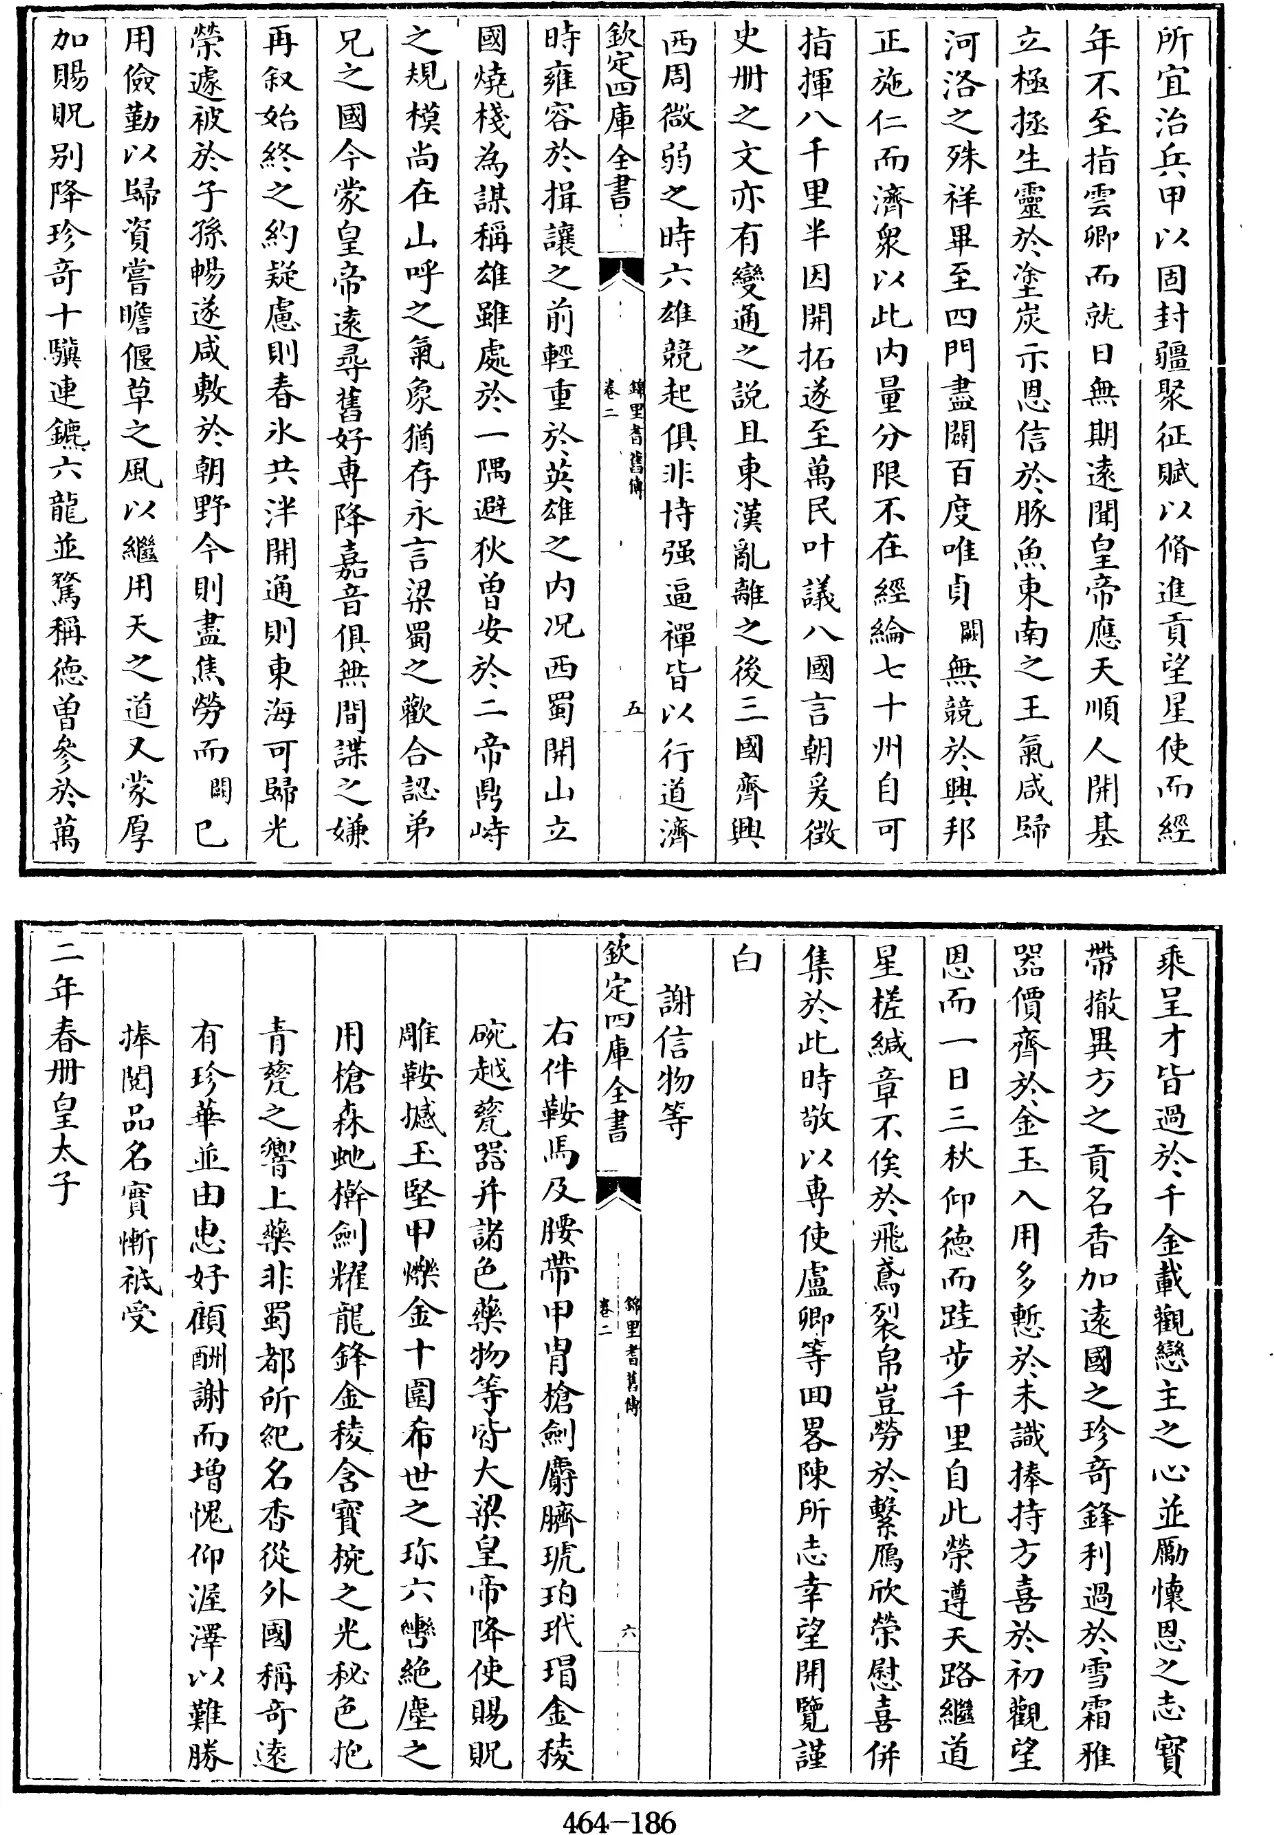 所宜治兵甲以固封疆聚征賦以脩進貢望星使而經
年不至指雲卿而就日無期遠聞皇帝應天順人開基
立極拯生靈於塗炭示恩信於豚魚東南之王氣咸歸
河洛之殊祥畢至四門盡闢百度唯貞闕無競於興邦
正施仁而濟衆以此內量分限不在經綸七十州自可
指揮八千里半因開拓遂至萬民叶議八國言朝爰徵
史冊之文亦有變通之説且東漢亂離之後三國齊興
西周微弱之時六雄競起俱非恃强逼禪皆以行道濟
欽定四庫全書
錦里耆舊傳
卷二
五
時雍容於揖讓之前輕重於英雄之内况西蜀開山立
國燒棧為謀稱雄雖處於一隅避狄曽安於二帝鼎峙
之規模尚在山呼之氣象猶存永言梁蜀之歡合認弟
兄之國今蒙皇帝遠尋舊好專降嘉音俱無間諜之嫌
再叙始終之約疑慮則春氷共泮開通則東海可歸光
榮遽被於子孫暢遂咸敷於朝野今則盡焦勞而闕已
用儉勤以歸資嘗瞻偃草之風以繼用天之道又蒙厚
加賜貺别降珍奇十驥連鑣六龍並駕稱德曽參於萬
乘呈才皆過於千金載觀戀主之心並勵懷恩之志寳
帶撤異方之貢名香加遠國之珍奇鋒利過於雪霜雅
器價齊於金玉入用多慙於未識捧持方喜於初觀望
恩而一日三秋仰德而跬步千里自此榮遵天路繼道
星槎緘章不俟於飛鳶裂帛豈勞於繫鴈欣榮慰喜併
集於此時敬以專使盧卿等囬畧陳所志幸望開覽謹
白
謝信物等
欽定四庫全書
錦里耆舊傳
卷二
六
右件鞍馬及腰帶甲冑槍劍麝臍琥珀玳瑁金稜
碗越甆器并諸色藥物等皆大梁皇帝降使賜貺
雕鞍撼玉堅甲爍金十圍希世之珎六轡絶塵之
用槍森虵榦劍耀龍鋒金稜含寳椀之光秘色抱
青甆之響上藥非蜀都所紀名香從外國稱奇遠
有珍華並由恵好顧酬謝而増愧仰渥澤以難勝
捧閲品名實慚祗受
二年春冊皇太子
464-186